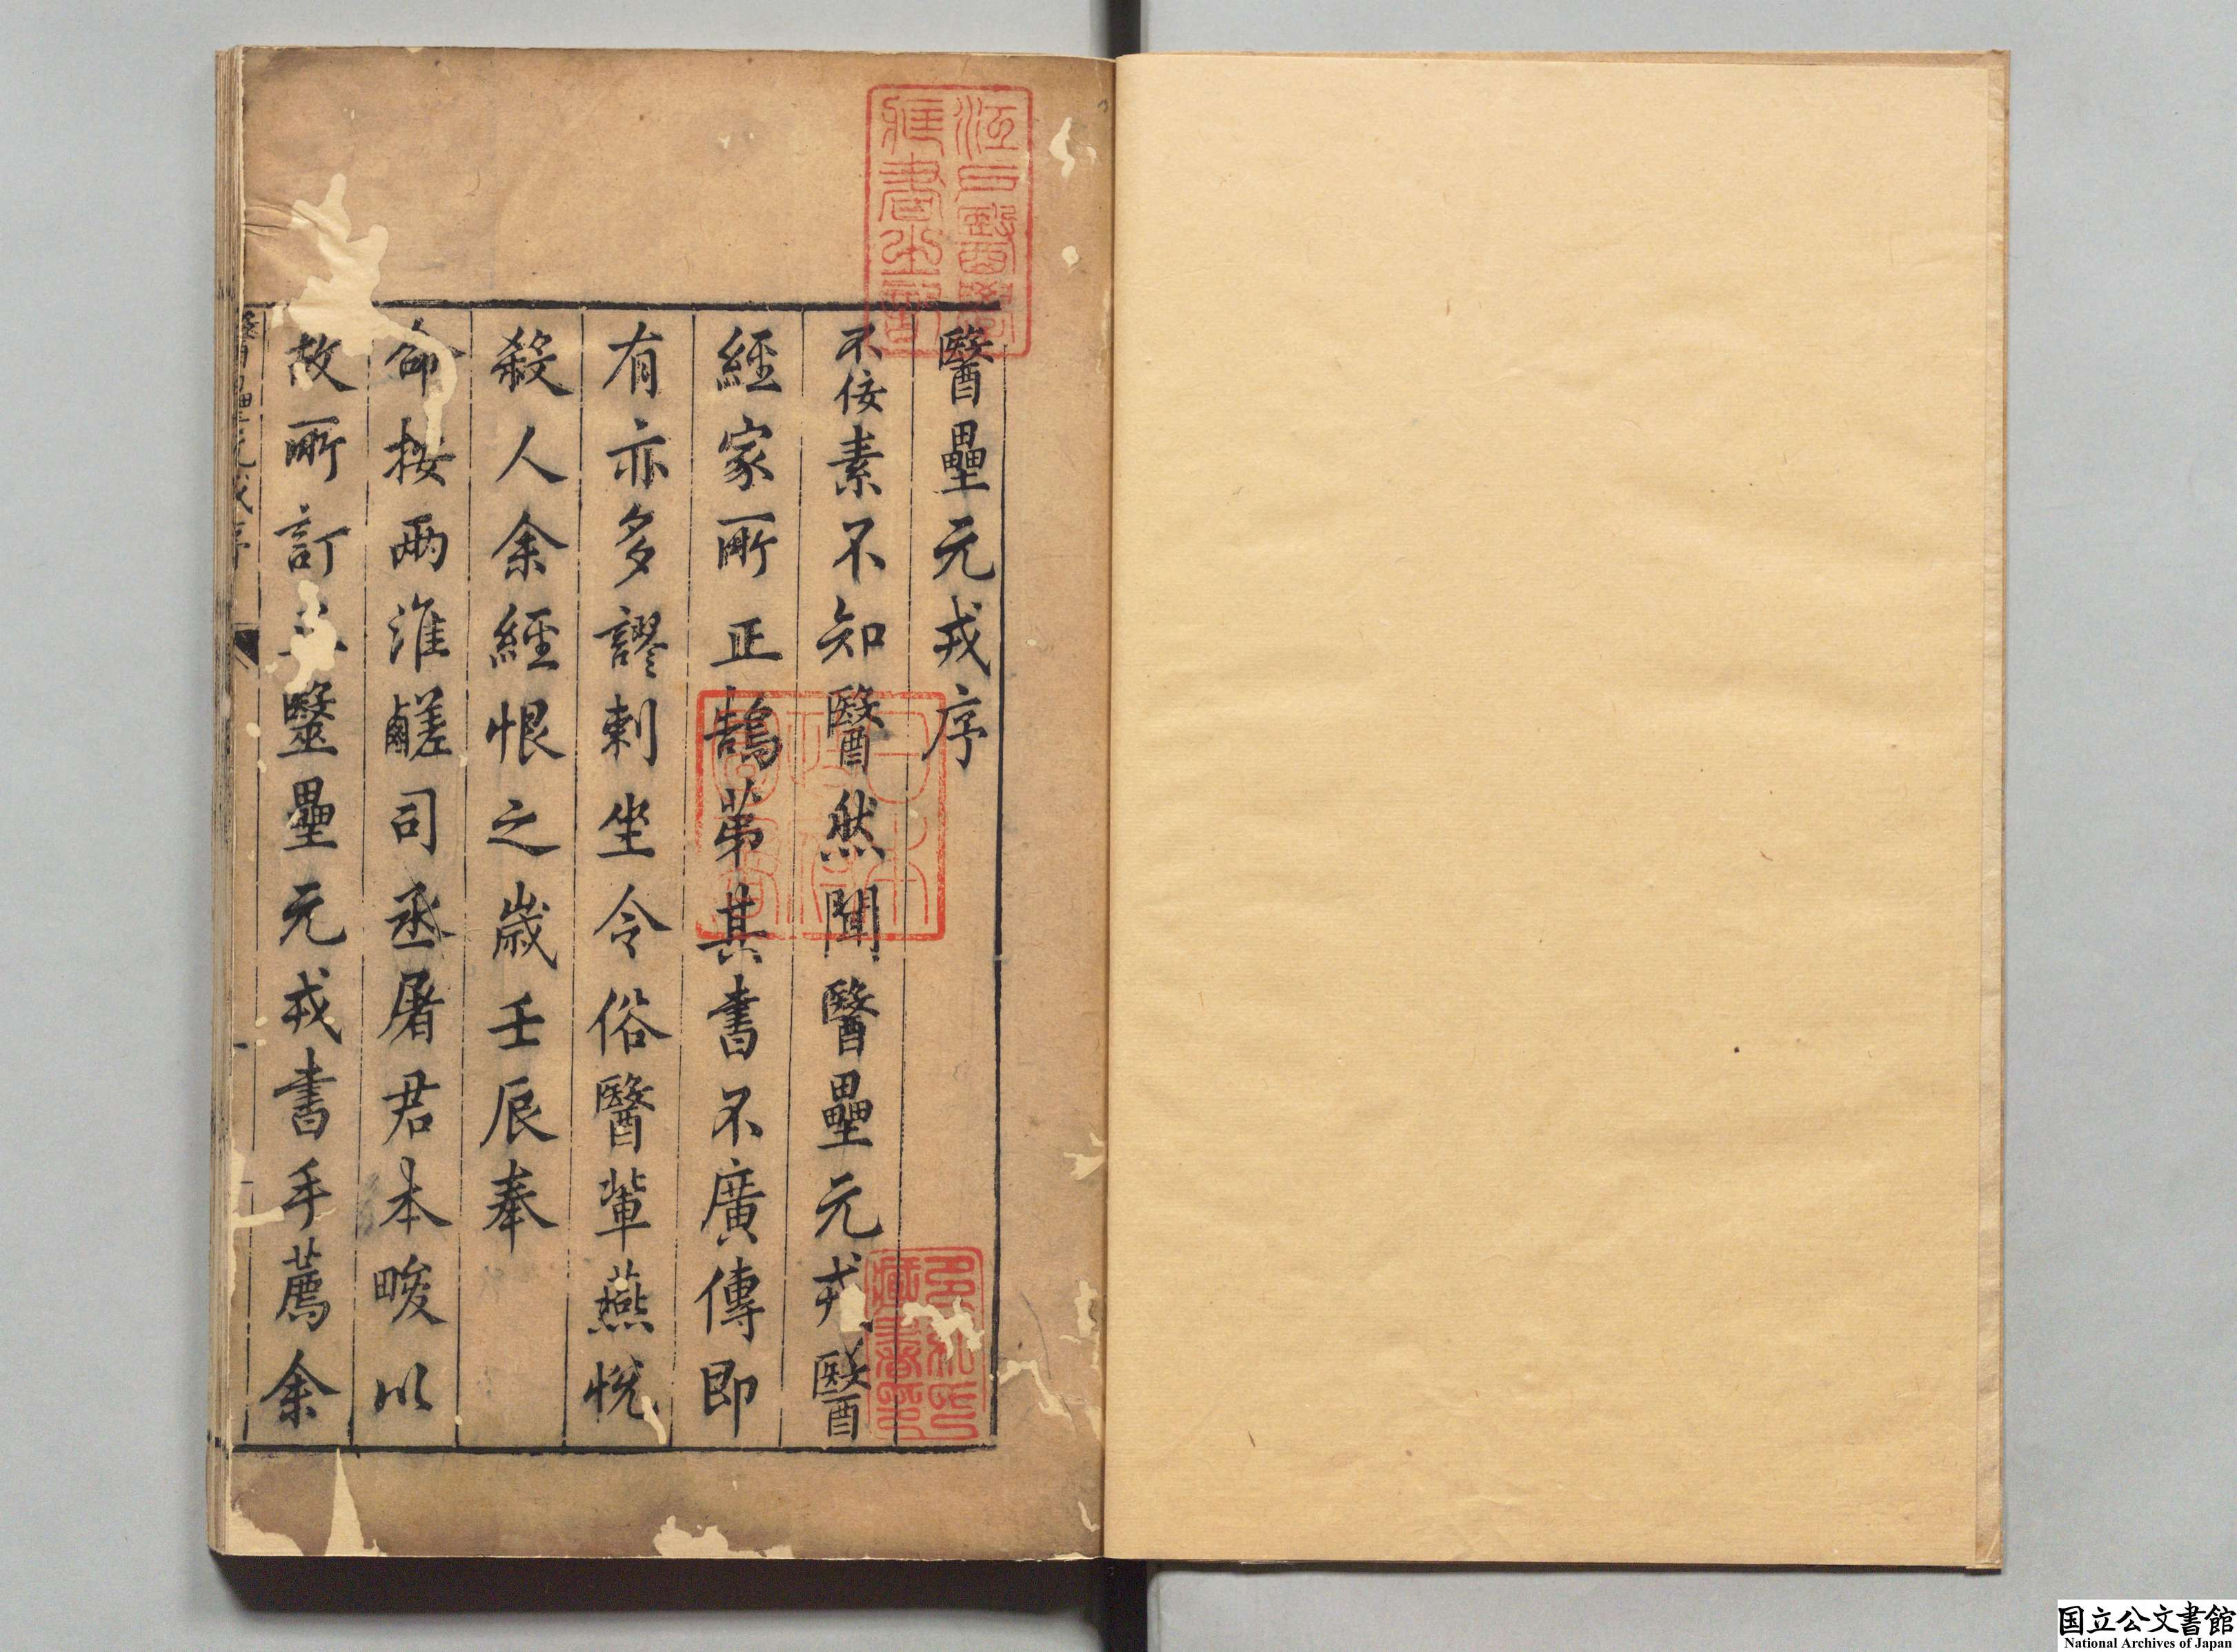 醫壘元戎序
不佞素不知醫然聞醫壘元戎醫
經家所正鵠苐其書不廣傳即
有亦多謬剌坐令俗醫輩燕悅
殺人余經恨之歲壬辰奉
命按兩淮鹺司丞屠君本畯以
故所訂醫壘元戎書手薦余
江戶醫學
藏書之記
日本
多紀氏
藏書印
国立公文書館
National Archives of Japan